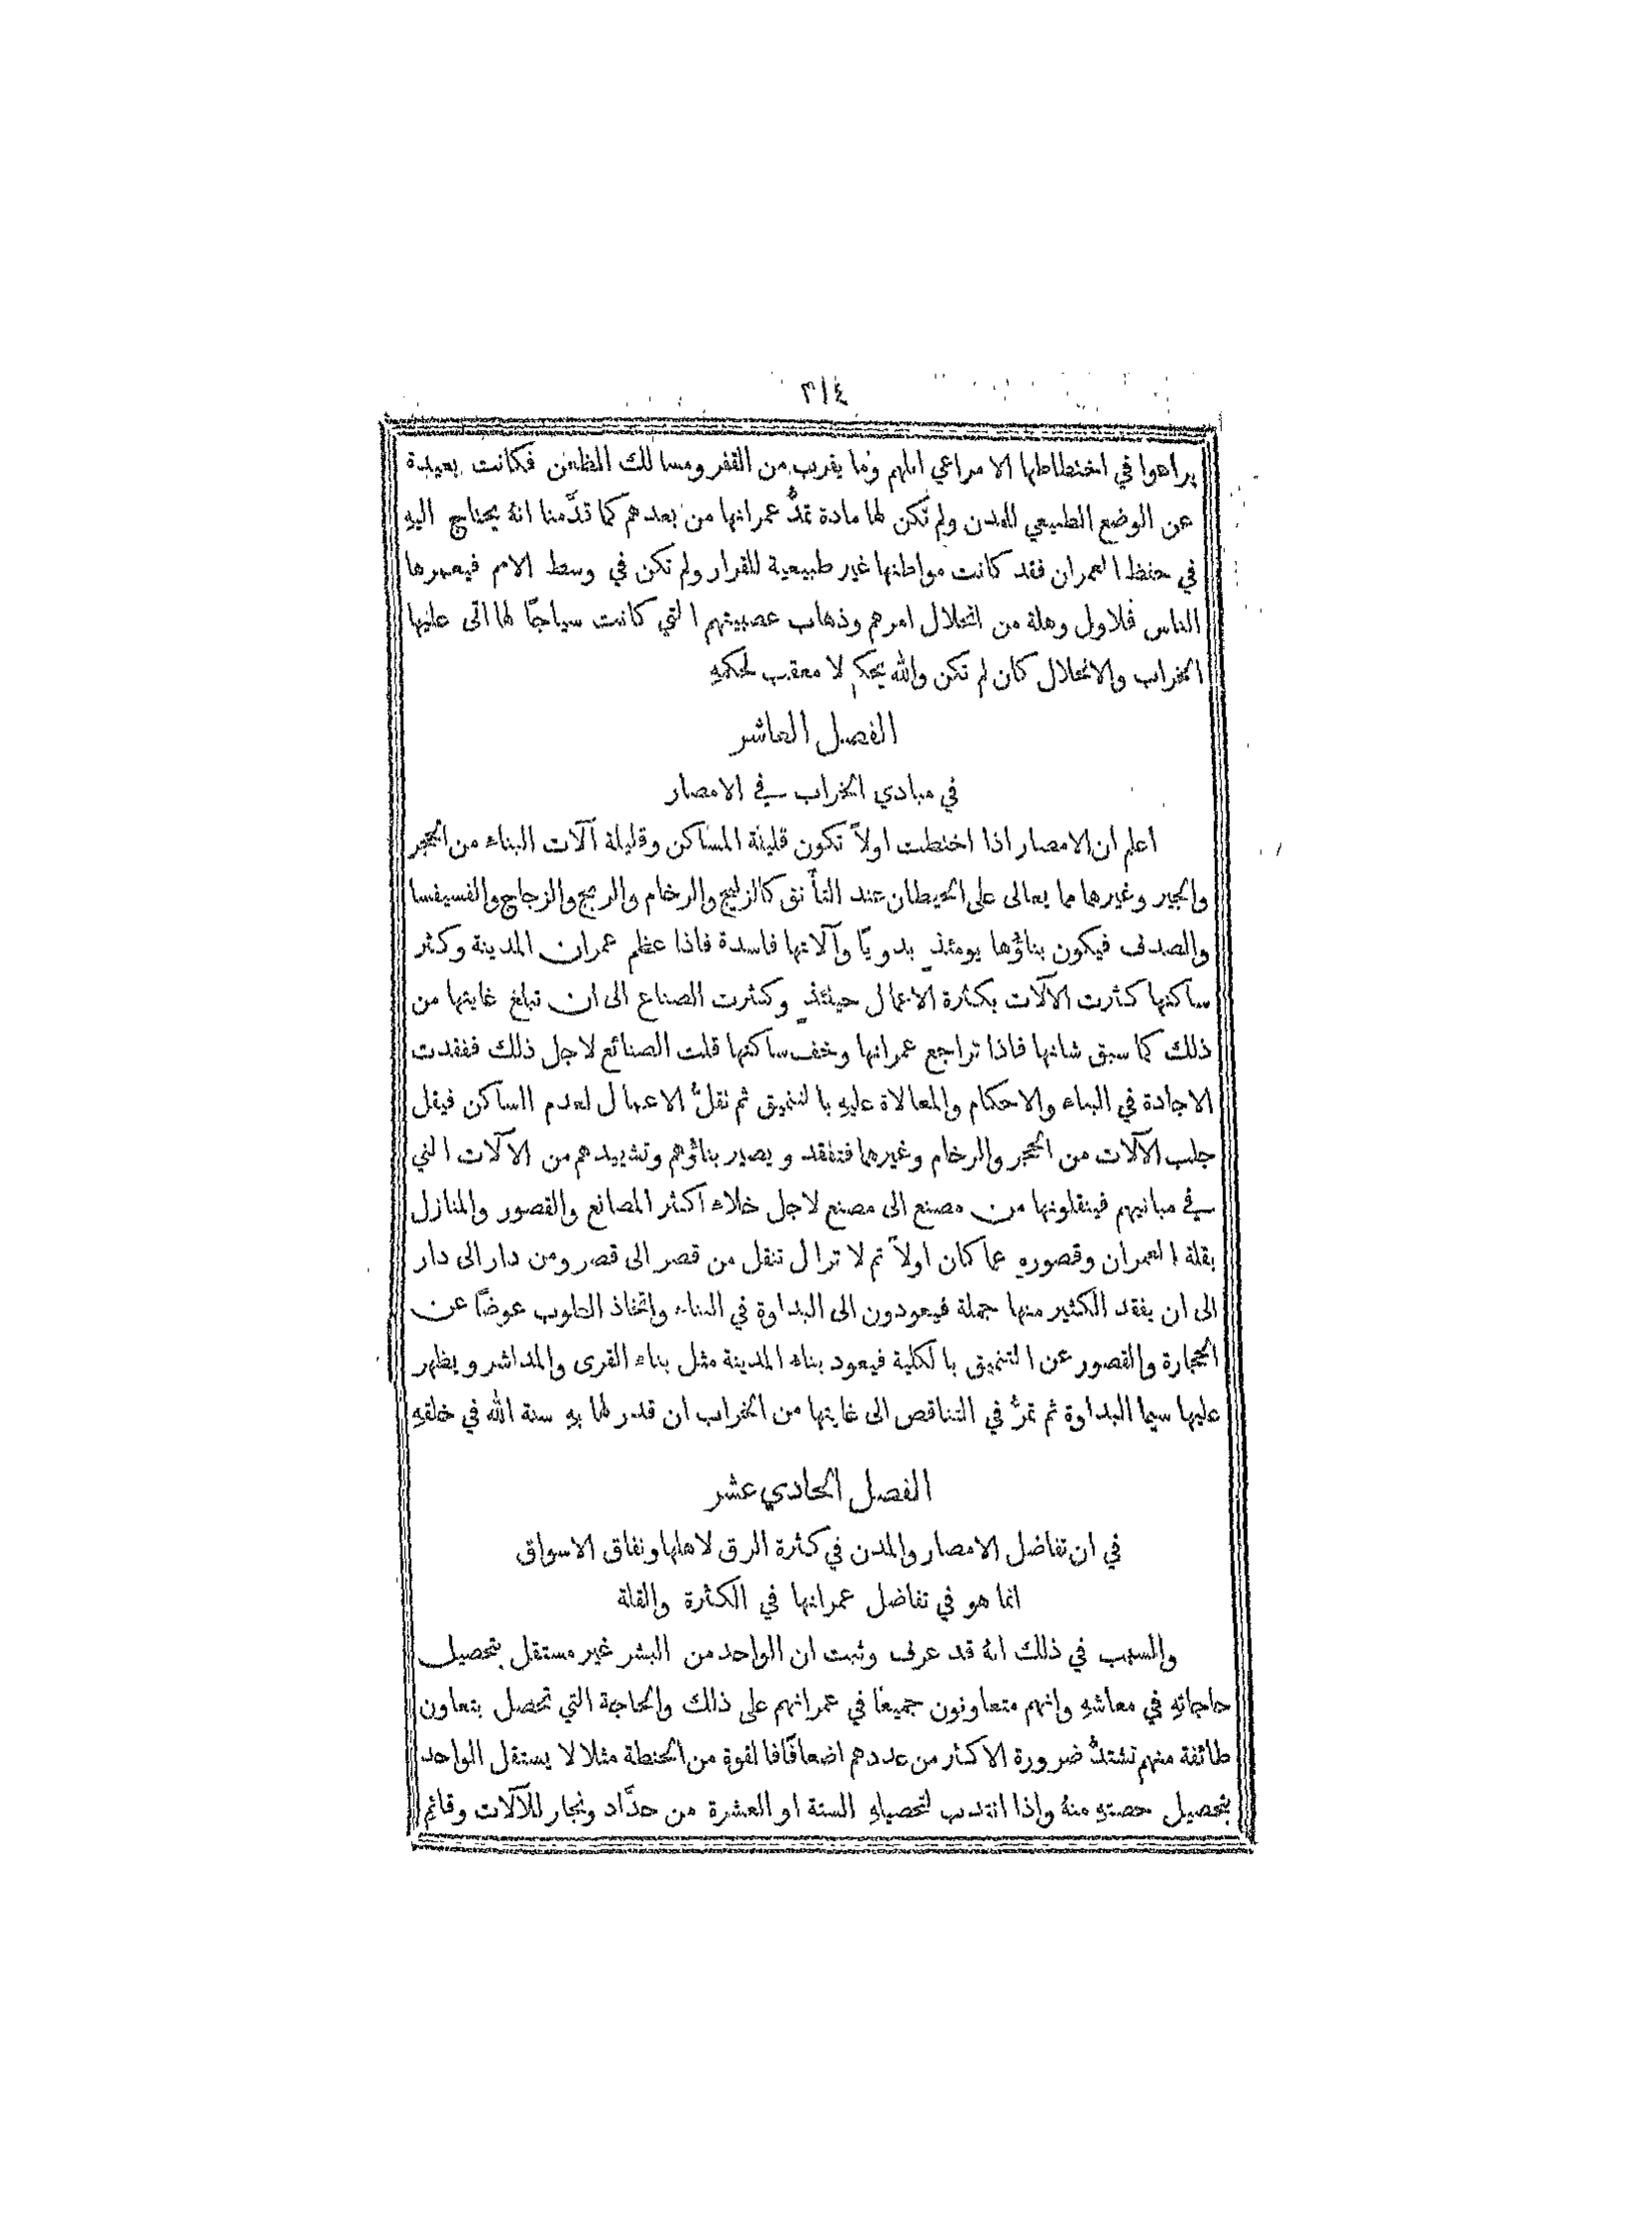 ٣١٤
يراعوا في اختطاطها الا مراعي ابلهم وما يقرب من القفر ومسالك الظعن فكانت بعيدة
عن الوضع الطبيعي للمدن ولم تكن لها مادة تمدُّ عمرانها من بعدهم كما قدَّمنا انهُ يحتاج اليهِ
في حفظ العمران فقد كانت مواطنها غير طبيعية للقرار ولم تكن في وسط الامم فيعمرها
الناس فلاول وهلة من انحلال امرهم وذهاب عصبيتهم التي كانت سياجًا لها اتى عليها
الخراب والانحلال كان لم تكن والله يحكم لا معقب لحكمهِ
الفصل العاشر
في مبادي الخراب في الامصار
اعلم ان الامصار اذا اختطت اولاً تكون قليلة المساكن وقليلة آلات البناء من الحجر
والجير وغيرهما مما يعالى على الحيطان عند التأنق كالزليج والرخام والربج والزجاج والفسيفسا
والصدف فيكون بناؤها يومئذٍ بدويًا وآلاتها فاسدة فاذا عظم عمران المدينة وكثر
ساكنها كثرت الآلات بكثرة الاعمال حينئذٍ وكثرت الصناع الى ان تبلغ غايتها من
ذلك كما سبق شانها فاذا تراجع عمرانها وخف ساكنها قلت الصنائع لاجل ذلك ففقدت
الاجادة في البناء والاحكام والمعالاة عليهِ بالتنميق ثم تقلُّ الاعمال لعدم الساكن فيقل
جلب الآلات من الحجر والرخام وغيرهما فتفقد ويصير بناؤهم وتشييدهم من الآلات التي
في مبانيهم فينقلونها من مصنع الى مصنع لاجل خلاء اكثر المصانع والقصور والمنازل
بقلة العمران وقصورهِ عما كان اولاً ثم لا تزال تنقل من قصر الى قصر ومن دار الى دار
الى ان يفقد الكثير منها جملة فيعودون الى البداوة في البناء واتخاذ الطوب عوضًا عن
الحجارة والقصور عن التنميق بالكلية فيعود بناء المدينة مثل بناء القرى والمداشر ويظهر
عليها سيما البداوة ثم تمرُّ في التناقص الى غايتها من الخراب ان قدر لها بهِ سنة الله في خلقهِ
الفصل الحادي عشر
في ان تفاضل الامصار والمدن في كثرة الرق لاهلها ونفاق الاسواق
انما هو في تفاضل عمرانها في الكثرة والقلة
والسبب في ذلك انهُ قد عرف وثبت ان الواحد من البشر غير مستقل بتحصيل
حاجاتهِ في معاشهِ وانهم متعاونون جميعًا في عمرانهم على ذلك والحاجة التي تحصل بتعاون
طائفة منهم تشتدُّ ضرورة الاكثر من عددهم اضعافًا فالقوة من الحنطة مثلا لا يستقل الواحد
بتحصيل حصتهِ منهُ واذا انتدب لتحصيلهِ الستة او العشرة من حدَّاد ونجار للآلات وقائم